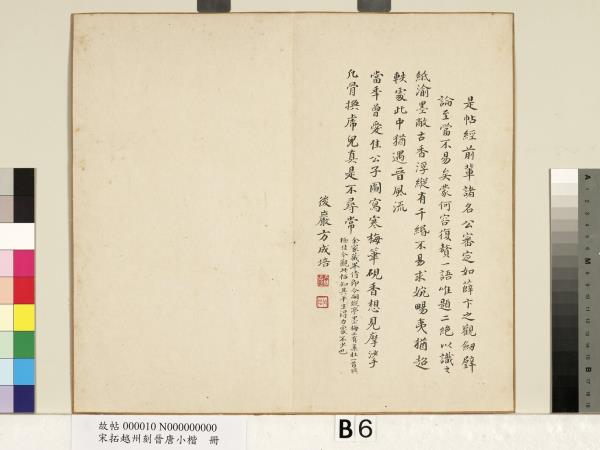 是帖經前輩諸名公審定如薛卞之觀劒璧
論至當不易矣蒙何容復贅一語唯題二絕以識之
紙渝墨敝古香浮縱有千縑不易求婉暢夷猶超
軼處此中猶遇晉風流
當年曾愛住公子圖寫寒梅筆硯香想見摩沙手
凡骨換席兒真是不尋常
余家藏
後巖方成培
故帖 000010 N000000000
宋拓越州刻晉唐小楷 冊
B6